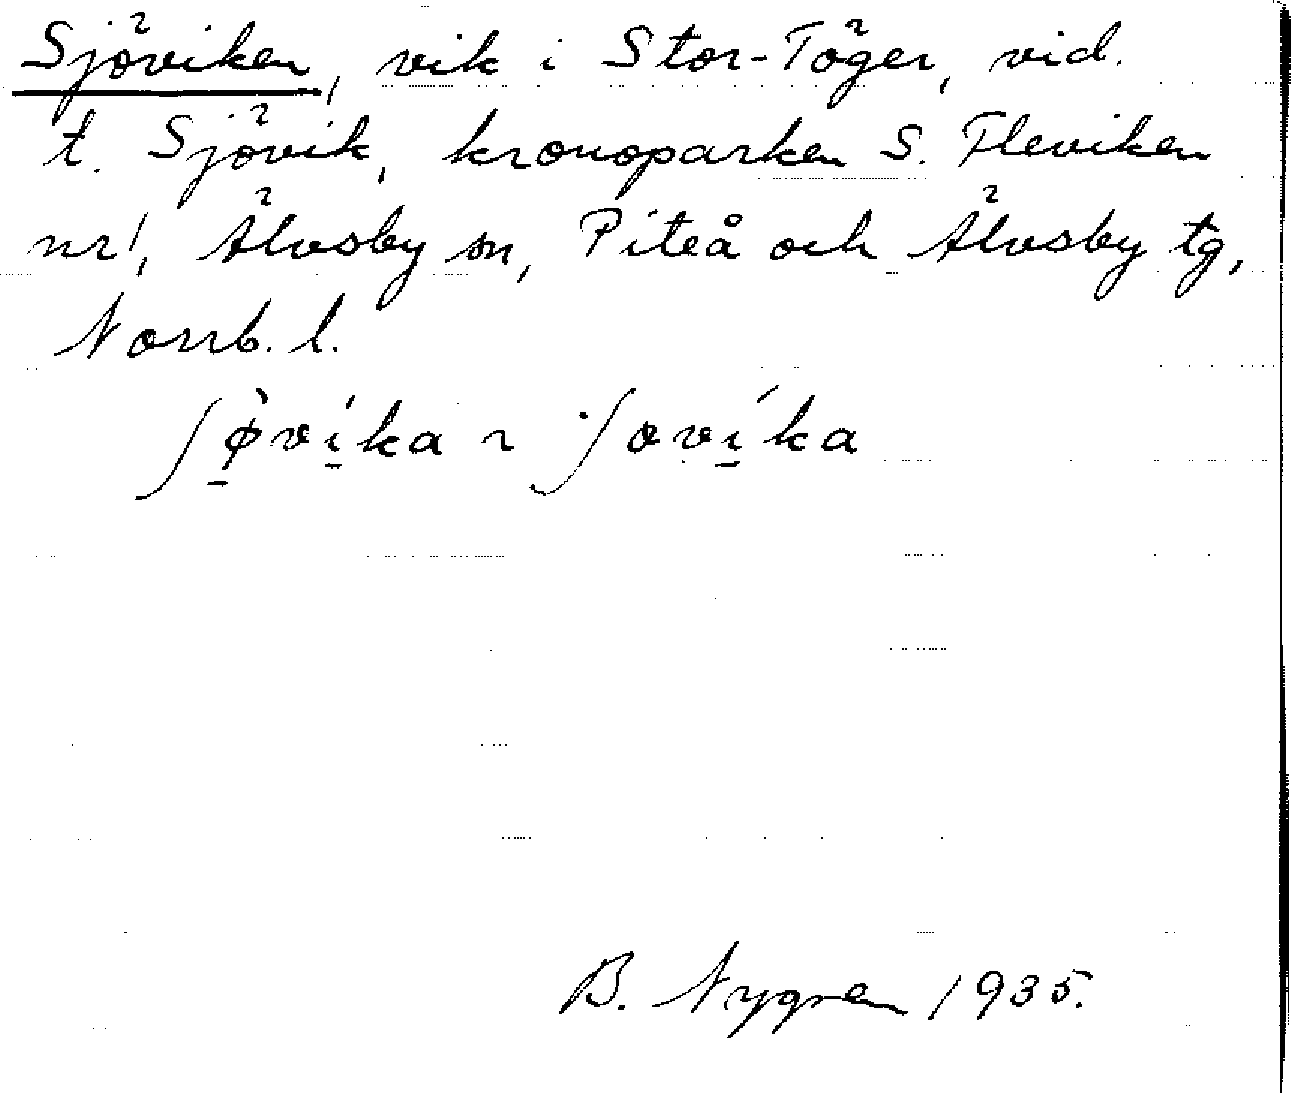 Sjöviken, vik i Stor-Töger, vid
t. Sjövik, kronoparken S. Fleviken
nr 1, Älvsby sn, Piteå och Älvsby tg,
Norrb. l.
B. Nygren 1935.